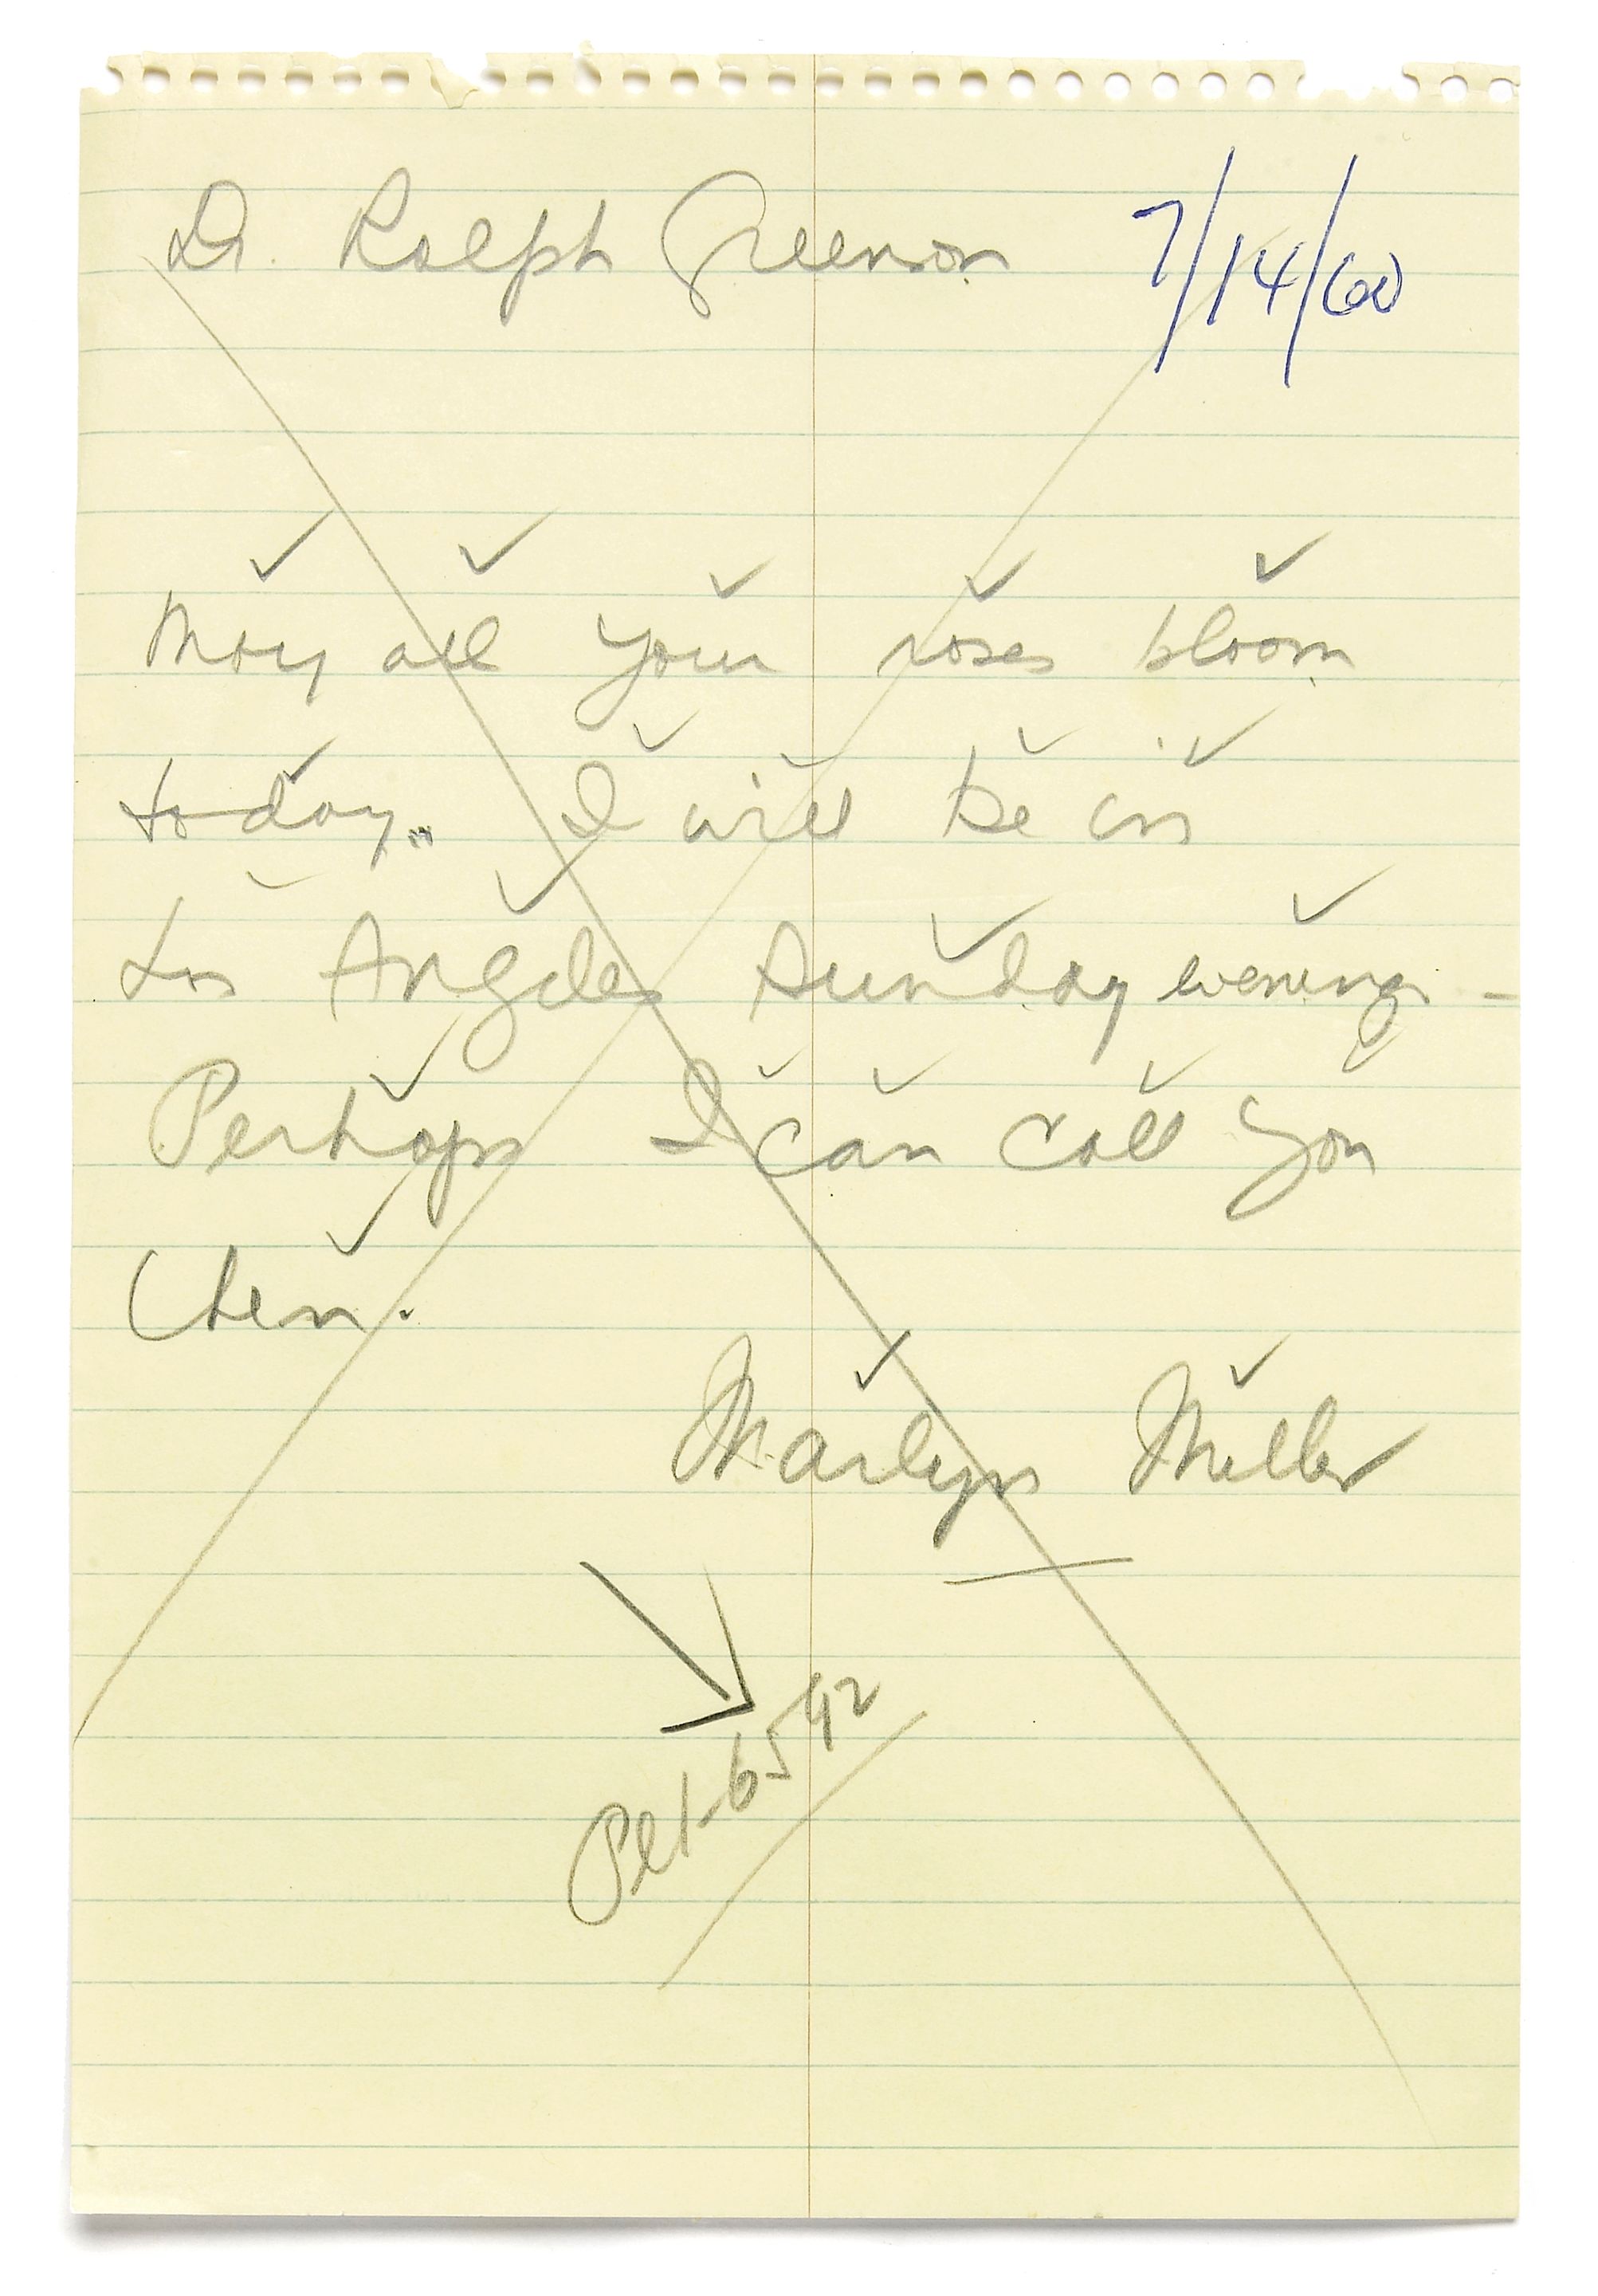 Dr. Ralph Greenson 7/14/60
May all your roses bloom
today. I will be in
Los Angeles Sunday evening -
Perhaps I can call you
then.
Marilyn Miller
Pl 1-6542